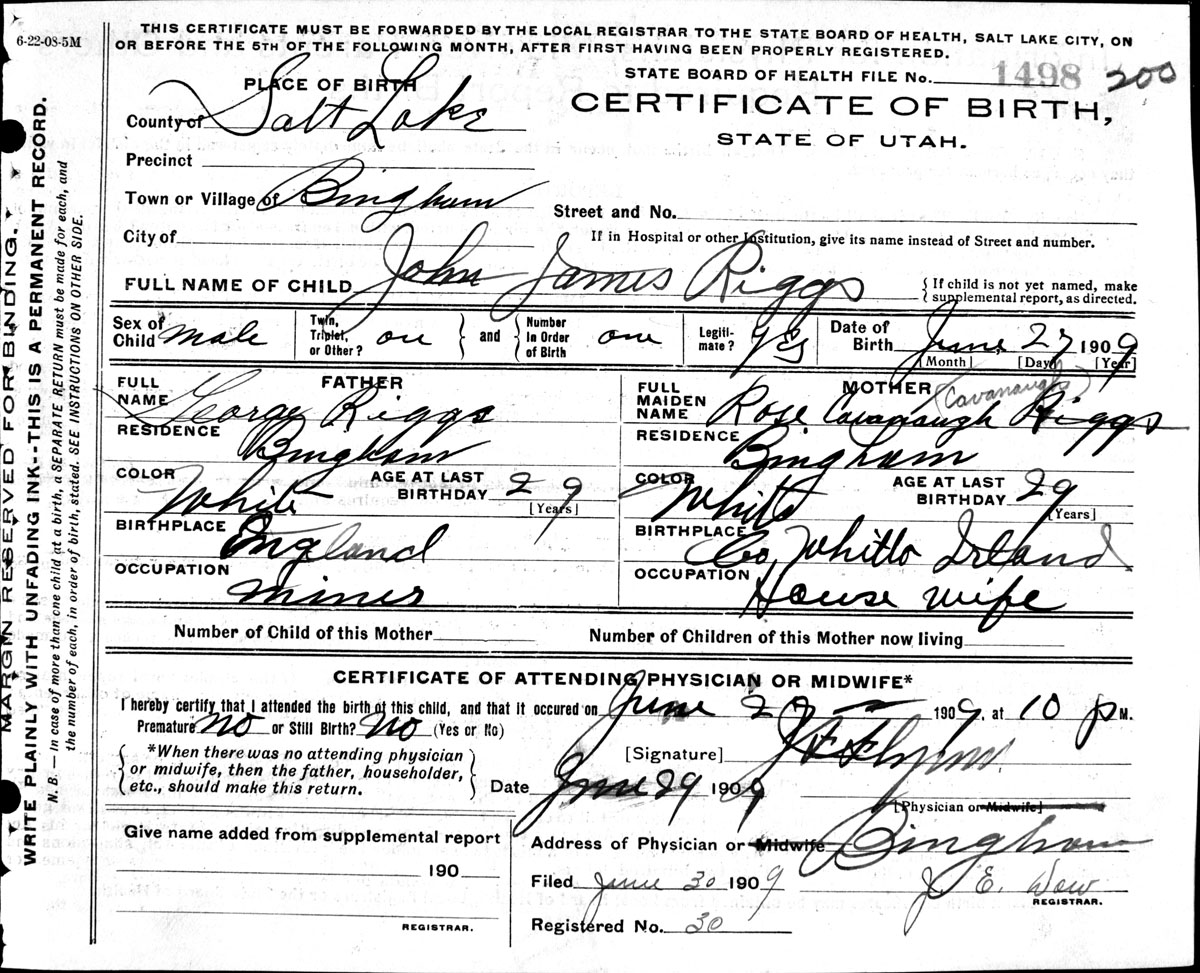 6-22-08-5M
THIS CERTIFICATE MUST BE FORWARDED BY THE LOCAL REGISTRAR TO THE STATE BOARD OF HEALTH, SALT LAKE CITY, ON
OR BEFORE THE 5TH OF THE FOLLOWING MONTH, AFTER FIRST HAVING BEEN PROPERLY REGISTERED.
STATE BOARD OF HEALTH FILE No. 1498 200
PLACE OF BIRTH
CERTIFICATE OF BIRTH,
STATE OF UTAH.
County of Salt Lake
Precinct
Town or Village of Bingham
Street and No.
City of
If in Hospital or other Institution, give its name instead of Street and number.
FULL NAME OF CHILD John James Riggs
{ If child is not yet named, make
supplemental report, as directed.
Sex of Child male
Twin, Triplet, or Other? one } and { Number In Order of Birth one
Legiti-mate? yes
Date of Birth June 27 1909
[Month] [Day] [Year]
FATHER
FULL NAME George Riggs
RESIDENCE Bingham
COLOR White AGE AT LAST BIRTHDAY 29
[Years]
BIRTHPLACE England
OCCUPATION miner
MOTHER (Cavanaugh)
FULL MAIDEN NAME Rose Cavanaugh Riggs
RESIDENCE Bingham
COLOR White AGE AT LAST BIRTHDAY 29
[Years]
BIRTHPLACE Co, Whitlo Irland
OCCUPATION House wife
Number of Child of this Mother
Number of Children of this Mother now living
CERTIFICATE OF ATTENDING PHYSICIAN OR MIDWIFE*
I hereby certify that I attended the birth of this child, and that it occured on June 27 1909, at 10 p M.
Premature no or Still Birth? No (Yes or No)
{ *When there was no attending physician
or midwife, then the father, householder,
etc., should make this return. }
[Signature]
Date June 29 1909
[Physician or Midwife]
Give name added from supplemental report
190
REGISTRAR.
Address of Physician or Midwife Bingham
Filed June 30 1909
J. E. Dow
REGISTRAR.
Registered No. 30
MARGIN RESERVED FOR BINDING.
WRITE PLAINLY WITH UNFADING INK--THIS IS A PERMANENT RECORD.
N. B. — In case of more than one child at a birth, a SEPARATE RETURN must be made for each, and
the number of each, in order of birth, stated. SEE INSTRUCTIONS ON OTHER SIDE.